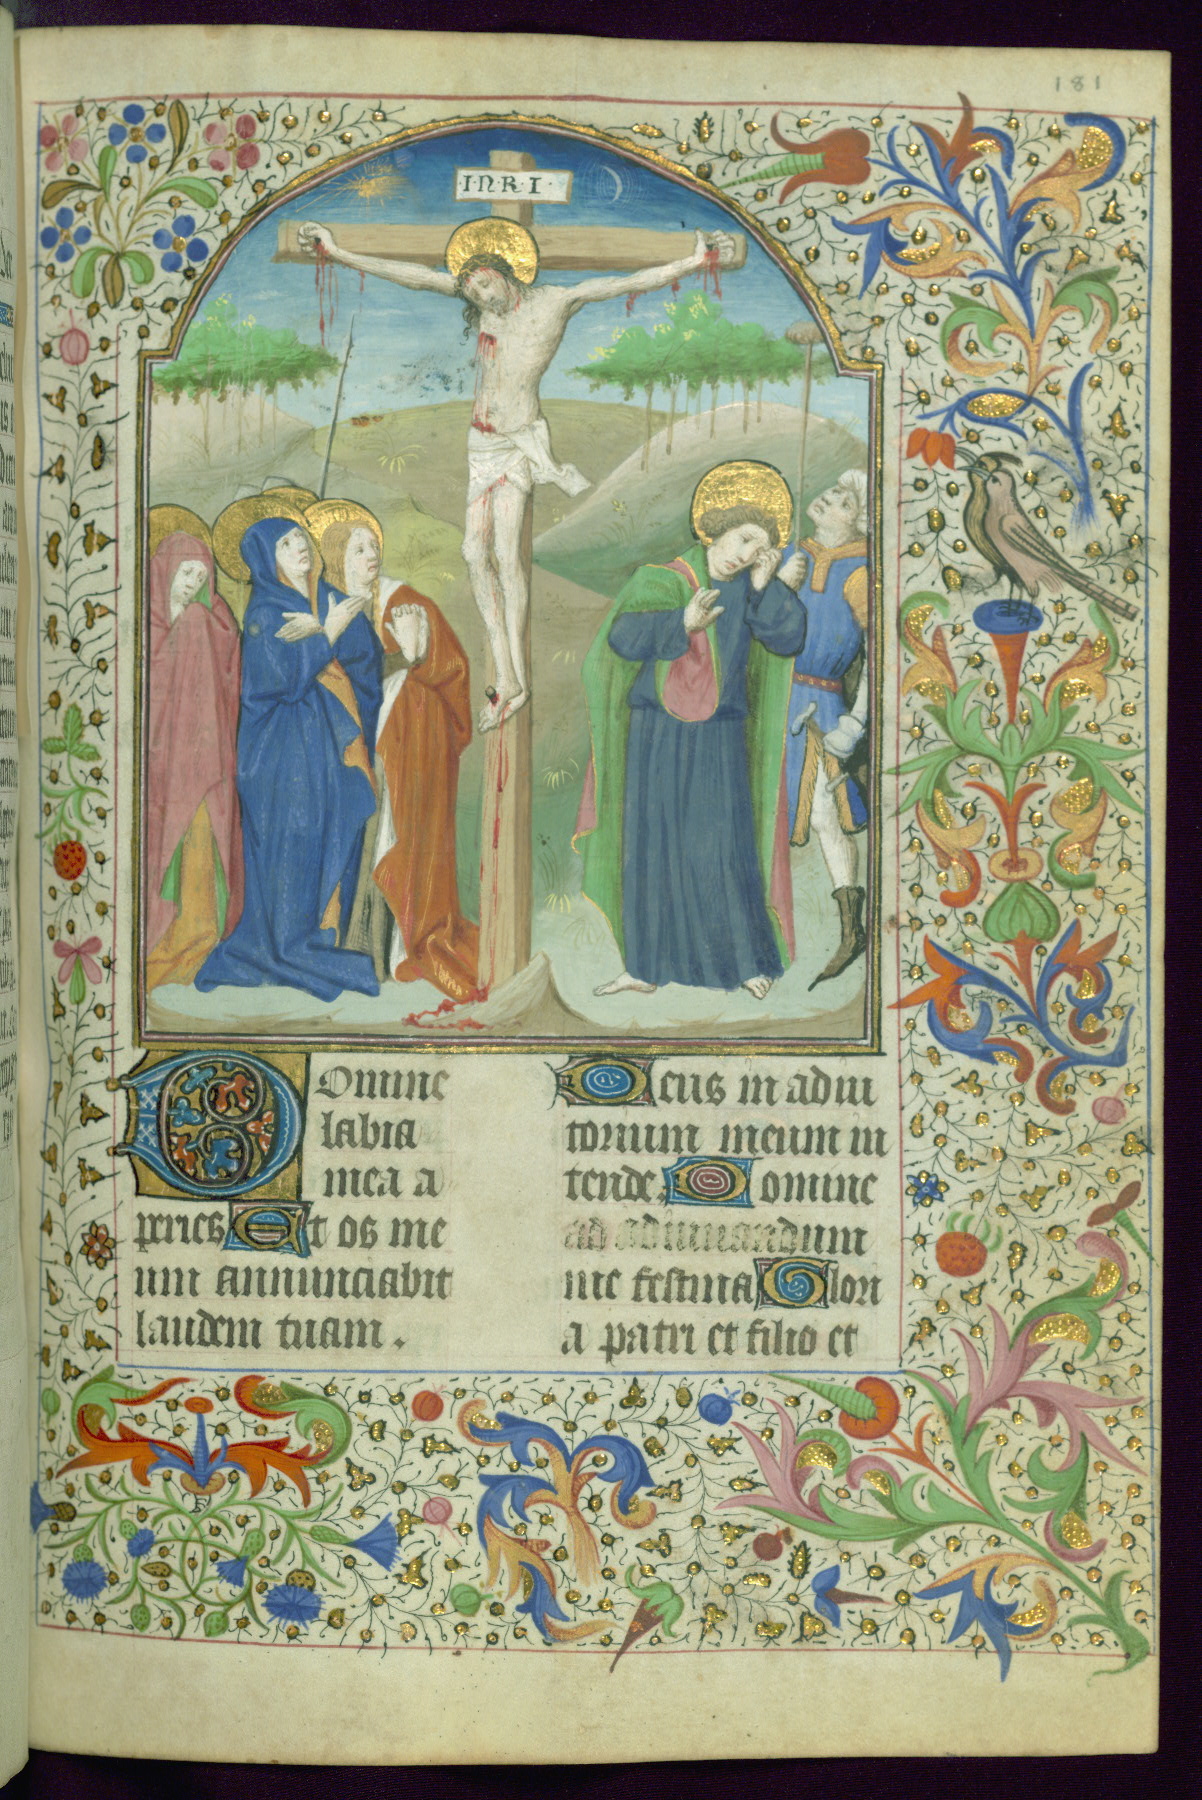 181
·I·N·R·I·
Domine
labia
mea a
peries Et os me
um annunciabit
laudem tuam.
Deus in adiu
torium meum in
tende. Domine
ad adiuuandum
me festina Glori
a patri et filio et